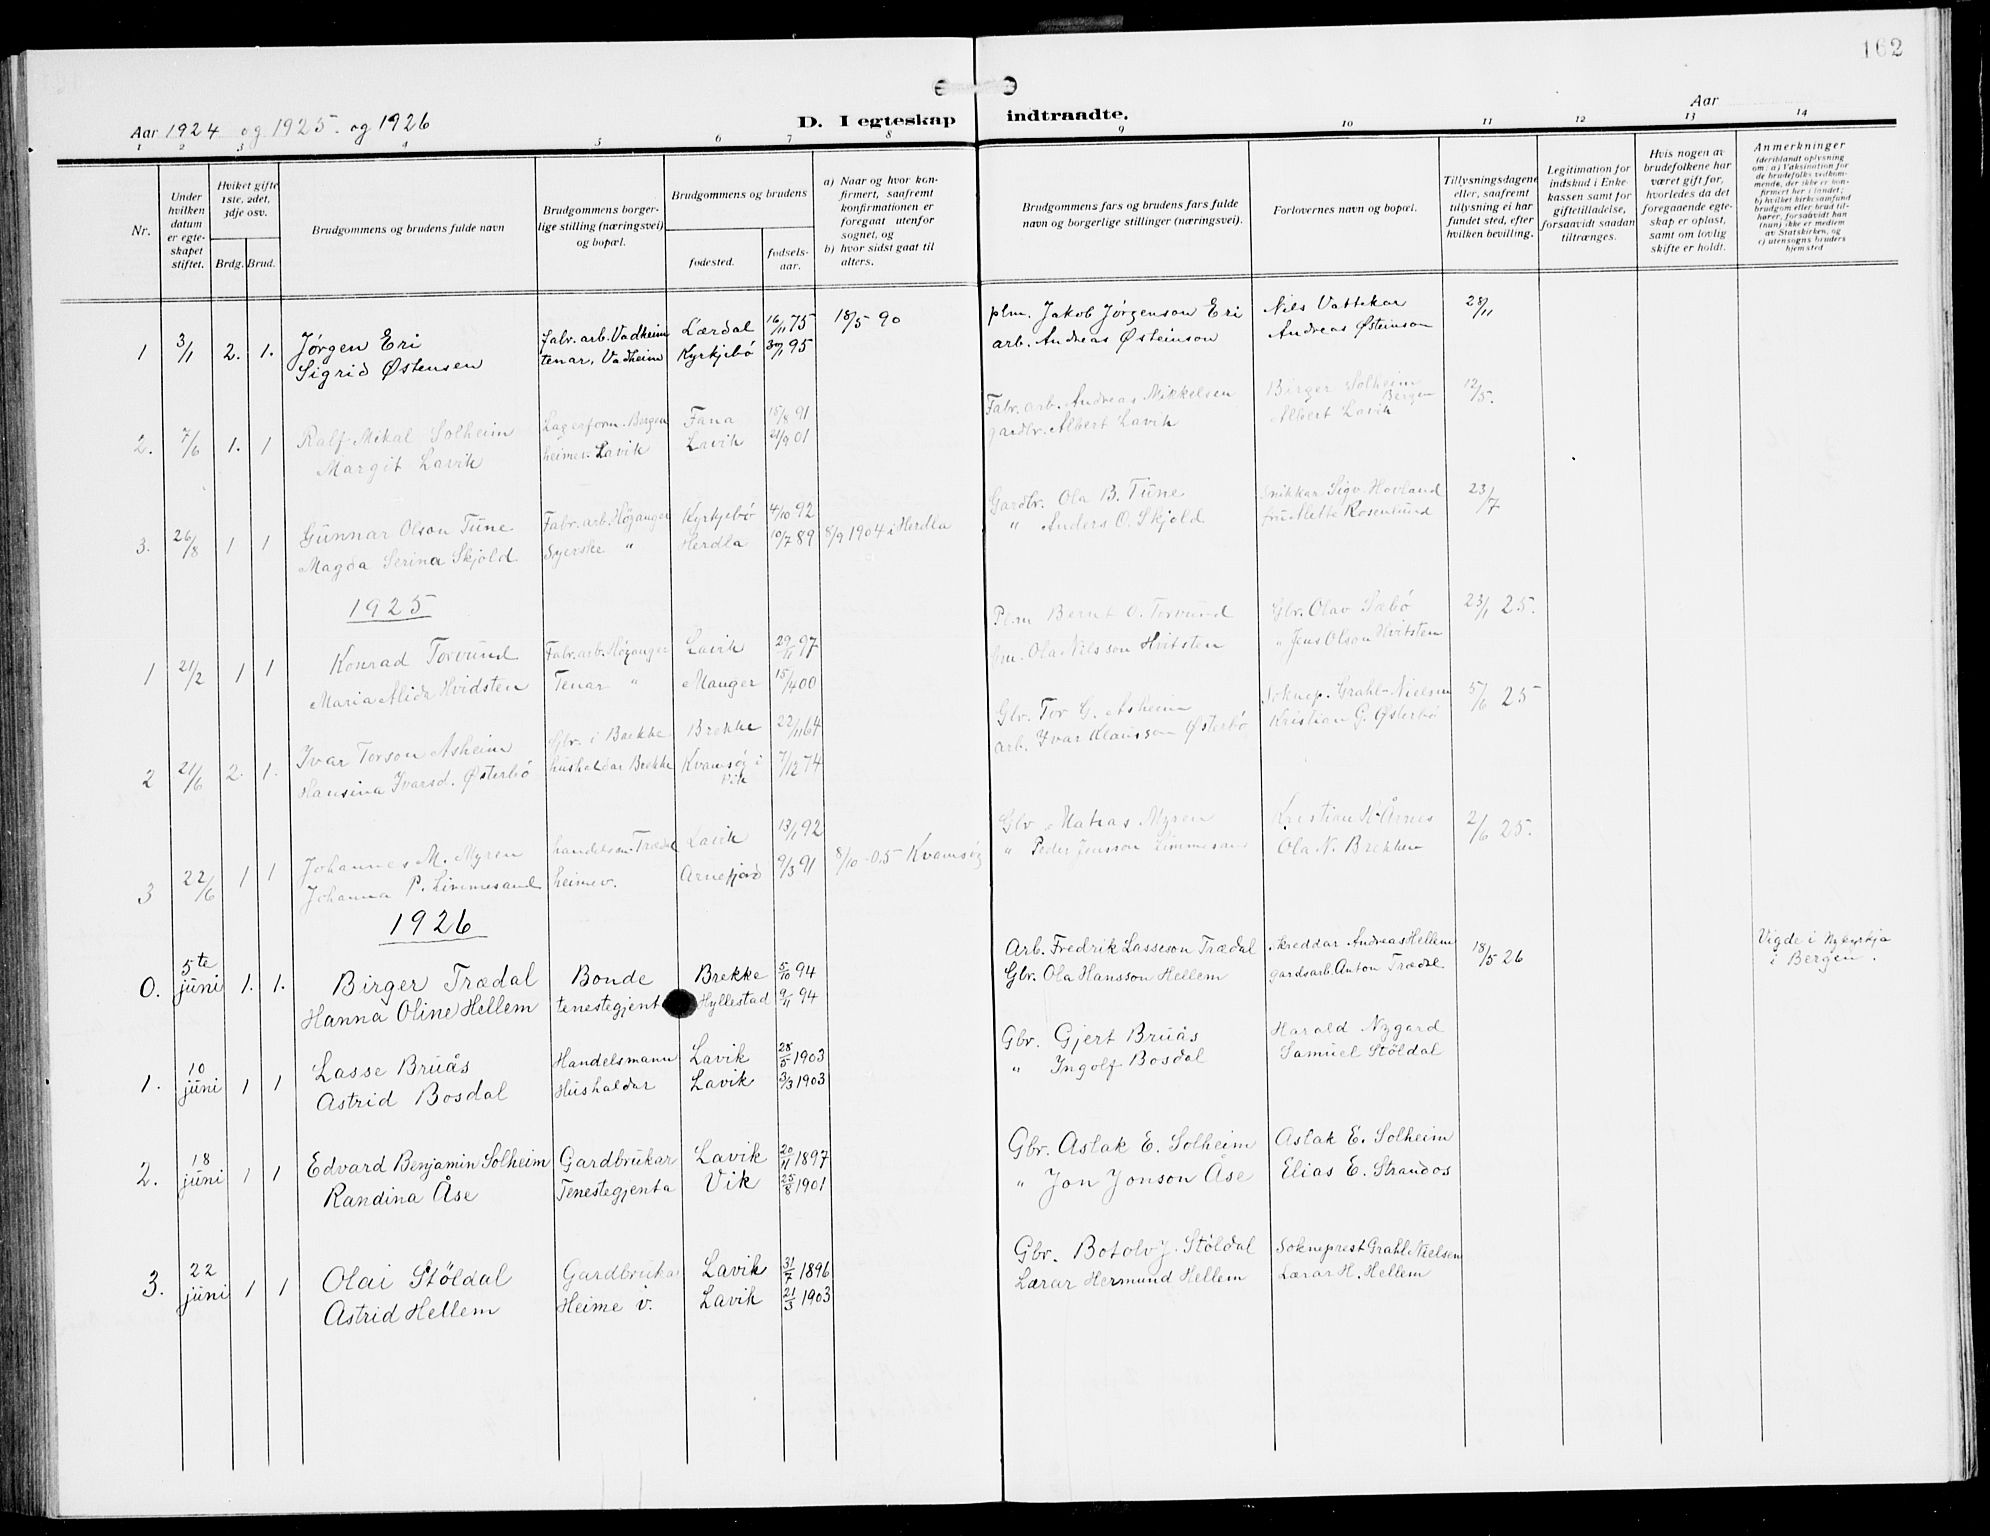 162
Aar 1924 og 1925. og 1926
D. I egteskap indtraadte.
Aar
1 2 3 4 5 6 7 8 9 10 11 12 13 14
Nr.
Under hvilken datum er egteskapet stiftet.
Hviket gifte 1ste, 2det, 3dje osv.
Brdg. Brud.
Brudgommens og brudens fulde navn
Brudgommens borgerlige stilling (næringsvei) og bopæl.
Brudgommens og brudens
fødested.
fødselsaar.
a) Naar og hvor konfirmert, saafremt konfirmationen er foregaat utenfor sognet, og
b) hvor sidst gaat til alters.
Brudgommens fars og brudens fars fulde navn og borgerlige stillinger (næringsvei).
Forlovernes navn og bopæl.
Tillysningsdagene eller, saafremt tillysning ei har fundet sted, efter hvilken bevilling.
Legitimation for indskud i Enkekassen samt for giftetilladelse, forsaavidt saadan tiltrænges.
Hvis nogen av brudefolkene har været gift før, hvorledes da det foregaaende egteskap er opløst, samt om lovlig skifte er holdt.
Anmerkninger
(deriblandt oplysning om: a) Vaksination for de brudefolks vedkommende, der ikke er konfirmert her i landet; b) hvilket kirkesamfund brudgom eller brud tilhører, forsaavidt han (hun) ikke er medlem av Statskirken, og c) utensogns bruders hjemsted
1 3/1 2. 1. Jørgen Eri Fabr. arb. Vadheim Lærdal 16/11 75 18/5 90 plm. Jakob Jørgenson Eri Nils Vattekar 28/11
Sigrid Østensen tenar, Vadheim Kyrkjebø 30/1 95 arb. Andreas Østeinson Andreas Østeinson
2. 7/6 1. 1 Ralf Mikal Solheim Lagerform. Bergen Fana 15/8 91 Fabr. arb. Andreas Mikkelsen Birger Solheim Bergen 12/5.
Margit Lavik heimev. Lavik Lavik 21/9 01 gardbr. Albert Lavik Albert Lavik
3. 26/8 1 1 Gunnar Olson Tune Fabr. arb. Høyanger Kyrkjebø 4/10 92 Gardbr. Ola B. Tune Snikkar Sigv. Hovland 23/7
Magda Serina Skjold Syerske " Herdla 10/7 89 8/9 1904 i Herdla " Anders O. Skjold fru Alette Rosenlund
1925
1 21/2 1 1 Konrad Torvund Fabr. arb. Høyanger Lavik 29/11 97 Plm Bernt O. Torvund Gbr. Olav Sæbø 23/1 25.
Maria Alida Hvidsten Tenar " Manger 15/4 00 Ola Nilsson Hvitsten " Jens Olson Hvitsten
2 21/6 2. 1. Ivar Torson Asheim Gbr. i Brekke Brekke 22/11 64 Gbr. Tor G. Asheim Soknep. Grahl-Nielsen 5/6 25
Hansina Ivarsd. Østerbø hushaldar Brekke Kvamsøy i Vik 7/12 74 arb. Ivar Klausson Østerbø Kristian G. Østerbø
3 22/6 1 1 Johannes M. Myren handelsm. Trædal Lavik 13/1 92 Gbr Matias Myren Kristian K. Årnes 2/6 25.
Johanna P. Limmesand heimev. Arnefjord 9/3 91 8/10 -05 Kvamsøy " Peder Jensson Limmesand Ola N. Brekken
1926
0. 5te juni 1. 1. Birger Trædal Bonde Brekke 5/10 94 Arb. Fredrik Lasseson Trædal Skreddar Andreas Hellem 18/5 26 Vigde i Nykyrkja i Bergen.
Hanna Oline Hellem tenestegjent Hyllestad 9/11 94 Gbr. Ola Hansson Hellem gardsarb. Anton Trædal
1. 10 juni 1 1 Lasse Bruås Handelsmann Lavik 28/5 1903 Gbr. Gjert Bruås Harald Nygard
Astrid Bosdal Hushaldar Lavik 3/3 1903 " Ingolf Bosdal Samuel Stöldal
2. 18 juni 1 1 Edvard Benjamin Solheim Gardbrukar Lavik 20/11 1897 Gbr. Aslak E. Solheim Aslak E. Solheim
Randina Åse Tenestegjenta Vik 25/8 1901 " Jon Jonson Åse Elias E. Strandos
3. 22 juni 1 1 Olai Stöldal Gardbrukar Lavik 31/7 1896 Gbr. Botolv J. Stöldal Sokneprest Grahl Nielsen
Astrid Hellem Heime v. Lavik 21/3 1903 Lærar Hermund Hellem Lærar H. Hellem